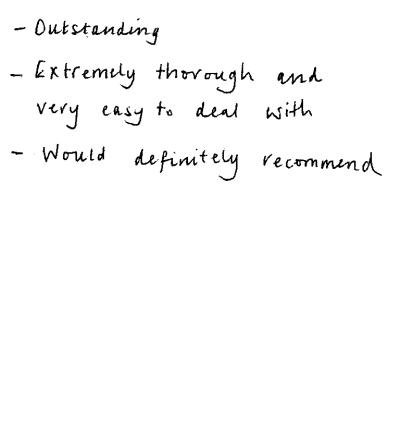 - Outstanding
- Extremely thorough and
very easy to deal with
- Would definitely recommend